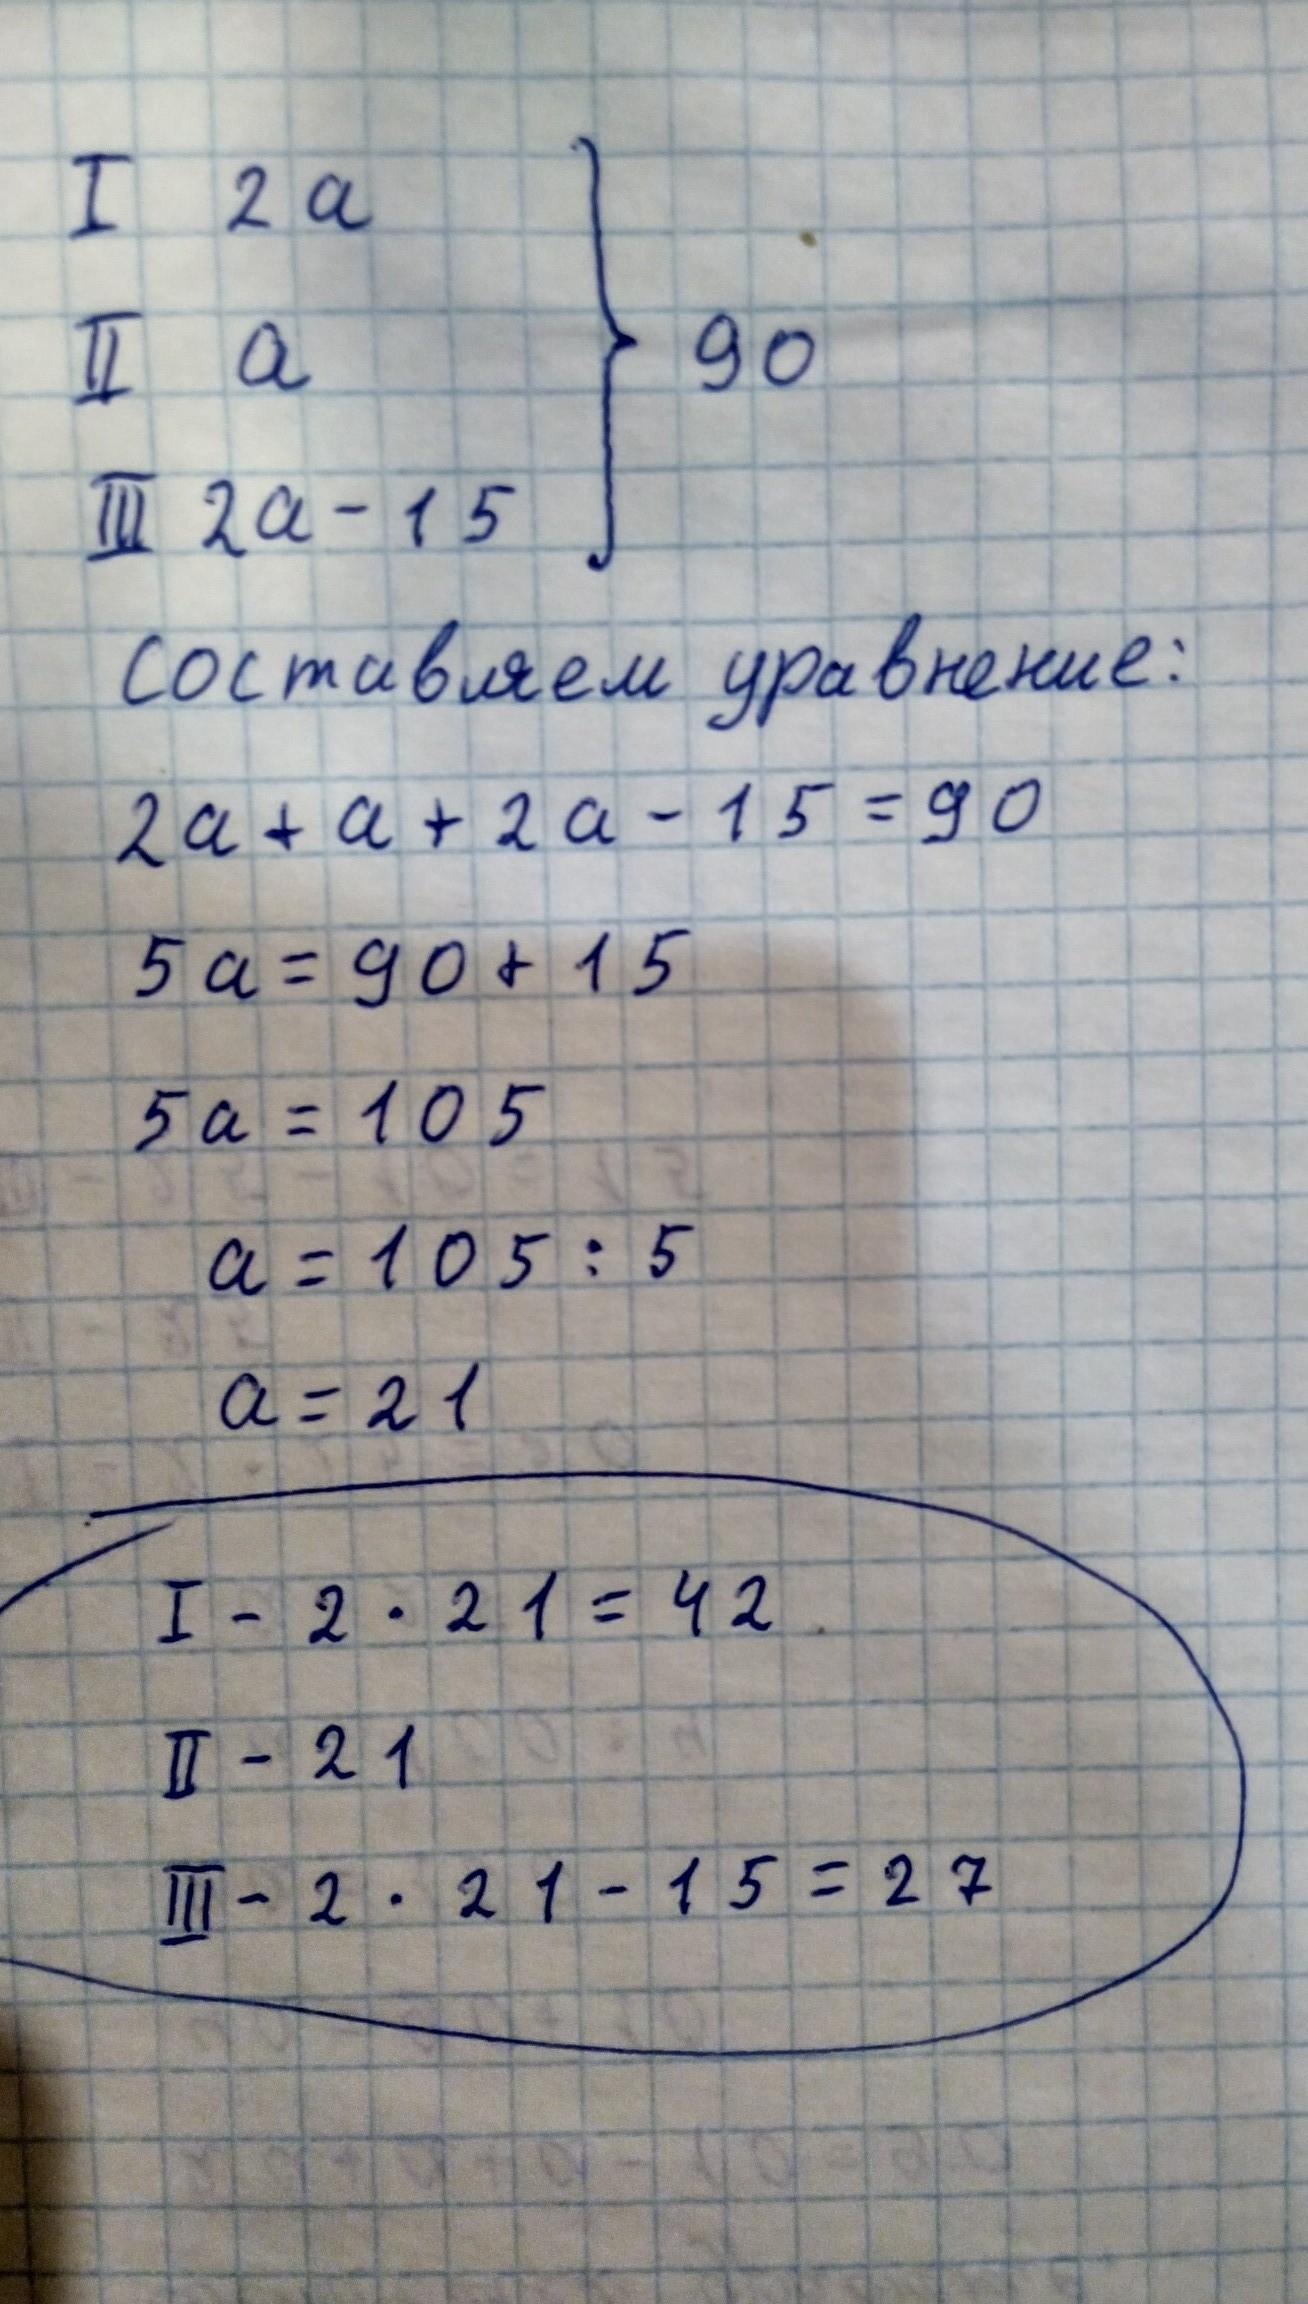 I 2a
II a
III 2a - 15
90
составляем уравнение:
2a + a + 2a - 15 = 90
5a = 90 + 15
5a = 105
a = 105 : 5
a = 21
I - 2 · 21 = 42
II - 21
III - 2 · 21 - 15 = 27